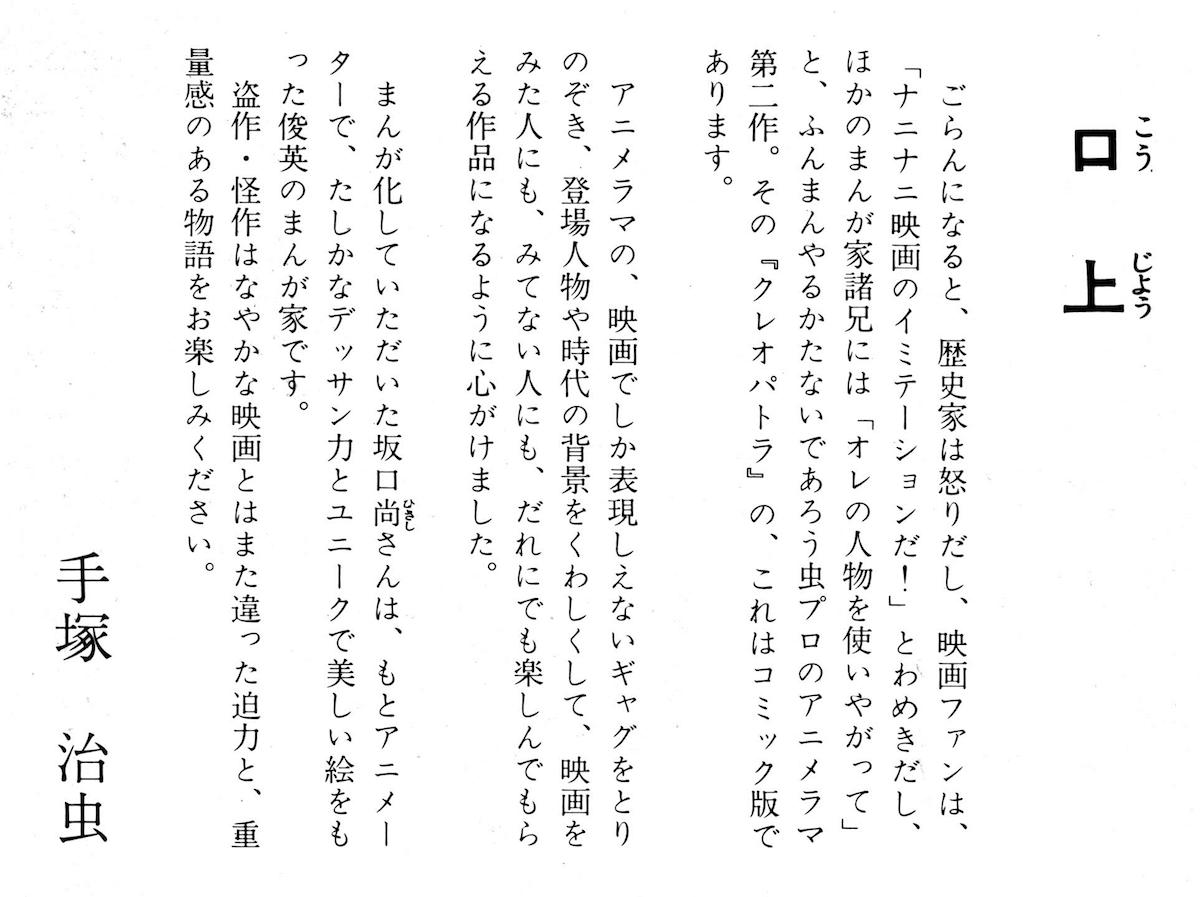 口上
こうじよう
ごらんになると、歴史家は怒りだし、映画ファンは、
「ナニナニ映画のイミテーションだ！」とわめきだし、
ほかのまんが家諸兄には「オレの人物を使いやがって」
と、ふんまんやるかたないであろう虫プロのアニメラマ
第二作。その『クレオパトラ』の、これはコミック版で
あります。
アニメラマの、映画でしか表現しえないギャグをとり
のぞき、登場人物や時代の背景をくわしくして、映画を
みた人にも、みてない人にも、だれにでも楽しんでもら
える作品になるように心がけました。
まんが化していただいた坂口尚さんは、もとアニメー
ひさし
ターで、たしかなデッサン力とユニークで美しい絵をも
った俊英のまんが家です。
盗作・怪作はなやかな映画とはまた違った迫力と、重
量感のある物語をお楽しみください。
手塚 治虫